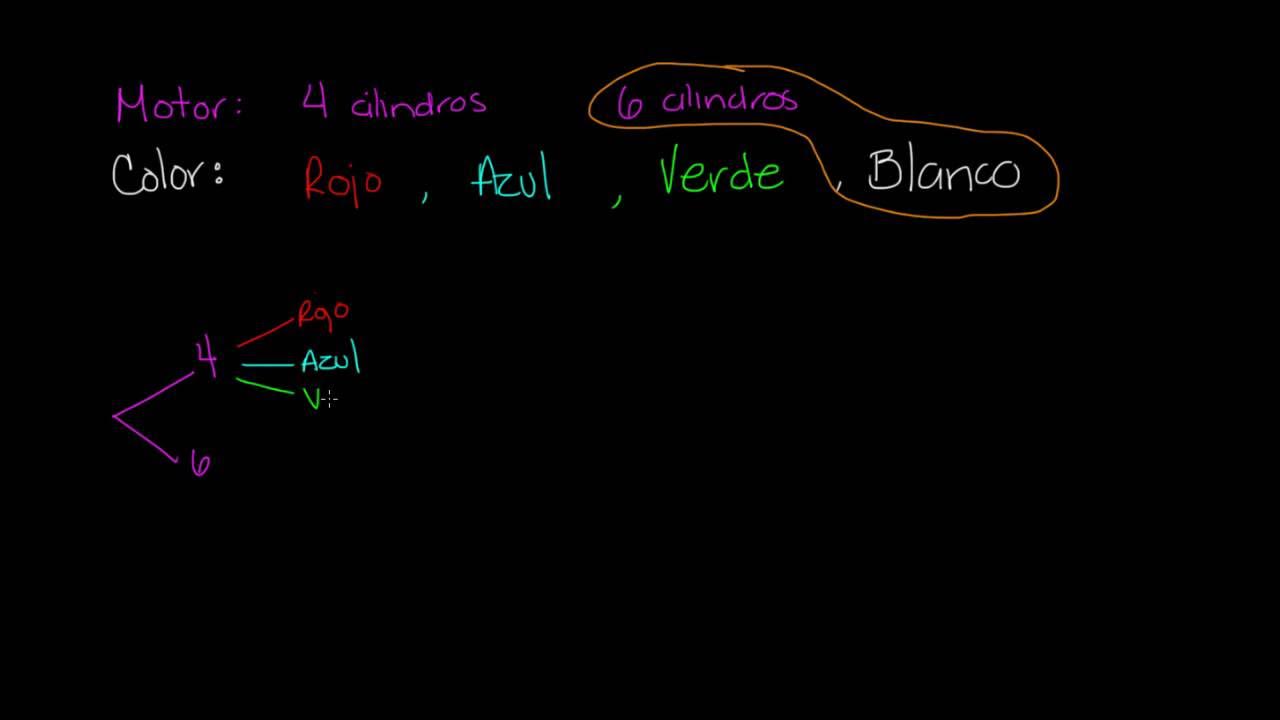 Motor: 4 cilindros 6 cilindros
Color: Rojo, Azul, Verde, Blanco
Rojo
4 Azul
V
6